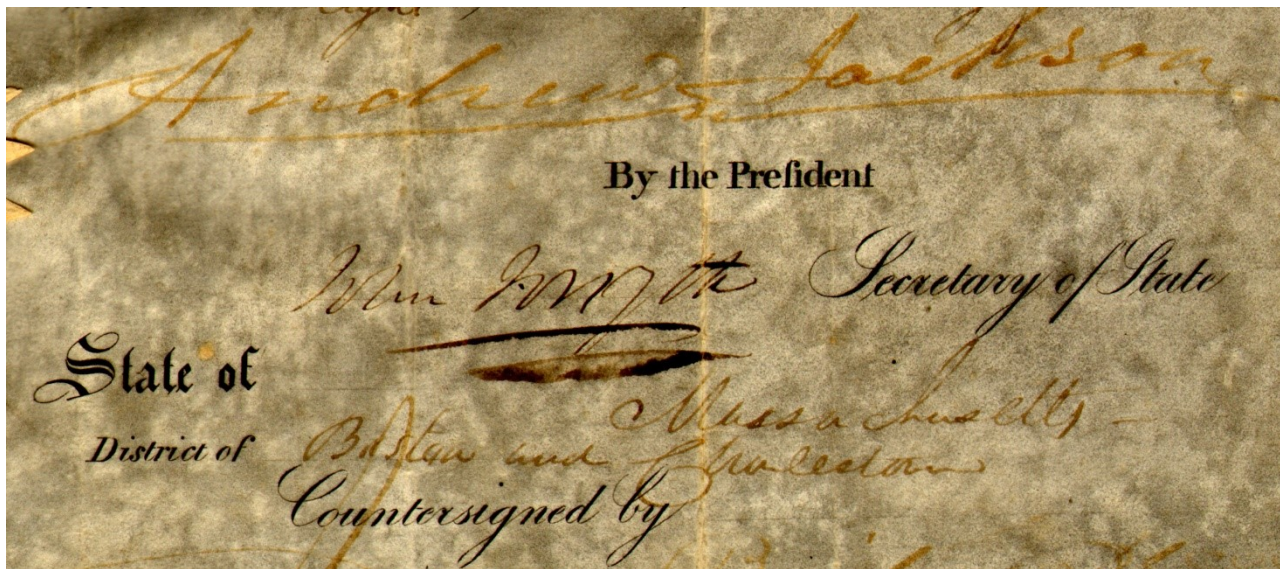 Andrew Jackson
By the Preſident
Secretary of State
State of Massachusetts
District of Boston and Charlestown
Countersigned by